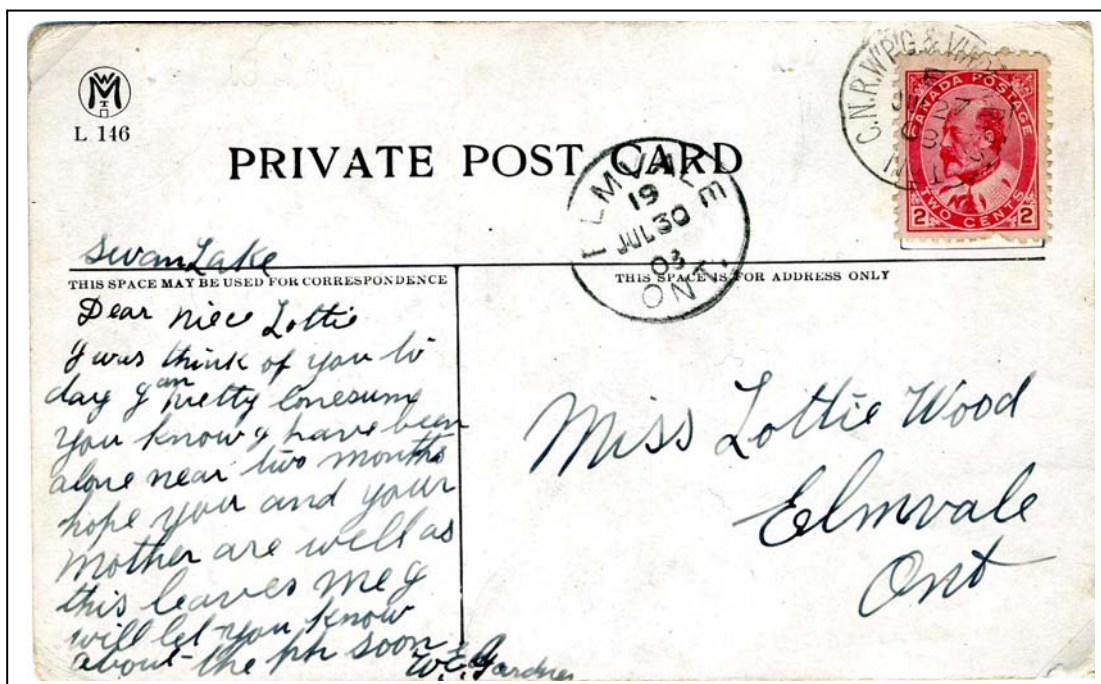 L 146
PRIVATE POST CARD
C.N.R. WPG &
27
CANADA POSTAGE
2 TWO CENTS 2
ELMVALE
19
JUL 30
03
ONT.
Swan Lake
THIS SPACE MAY BE USED FOR CORRESPONDENCE
THIS SPACE IS FOR ADDRESS ONLY
Dear Niece Lottie
I was think of you to
day I am pretty lonesum
you know I have been
alone near two months
hope you and your
Mother are well as
this leaves me I
will let you know
about the ph soon
W.E. Gardner
Miss Lottie Wood
Elmvale
Ont